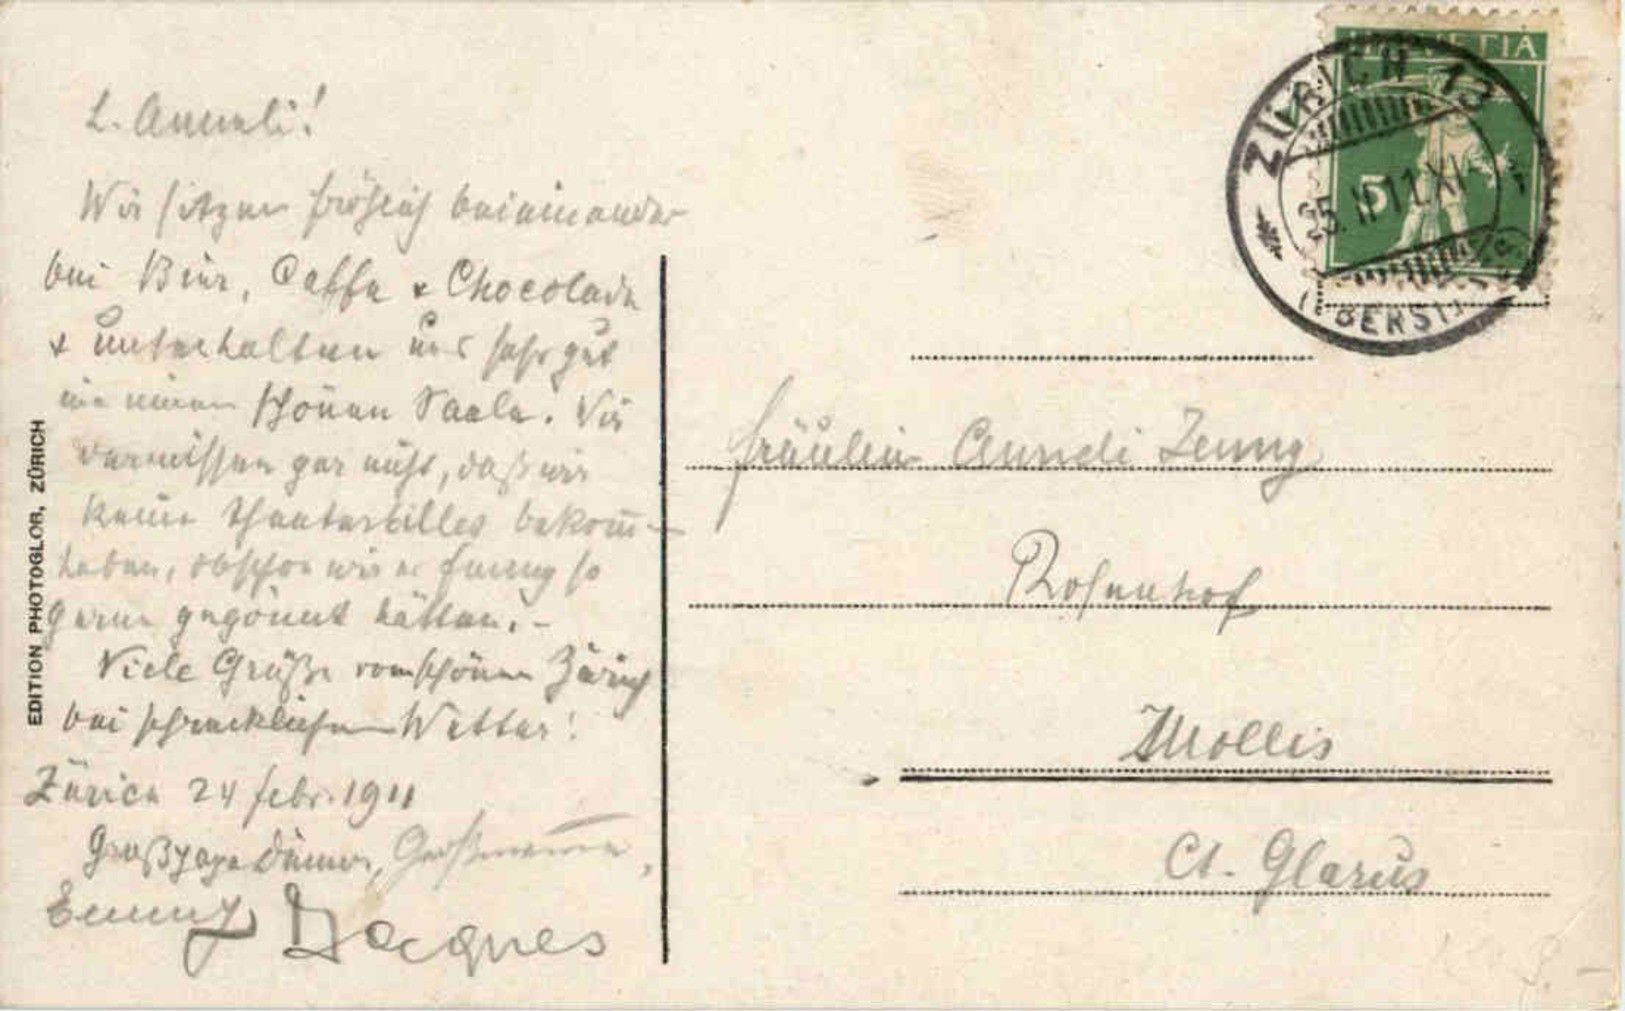 L. Anneli!
Wir sitzen fröhlich beieinander
bei Bier, Caffe & Chocolade
& unterhalten uns sehr gut
in einem schönen Saale. Wir
vermissen gar nicht, daß wir
keine Theaterbillet bekom̅-
haben, obschon wir es Emmy so
gerne gegönnt hätten. -
Viele Grüße vom schönen Zürich
bei schrecklichem Wetter!
Zürich 24 febr. 1911
Großpapa Großmama,
Emmy Jacques
EDITION PHOTOGLOB, ZÜRICH
HELVETIA
5
ZÜRICH 13
25. II 11. XI
(OBERST.)
Fräulein Anneli Jenny
Rosenhof
Mollis
Ct. Glarus